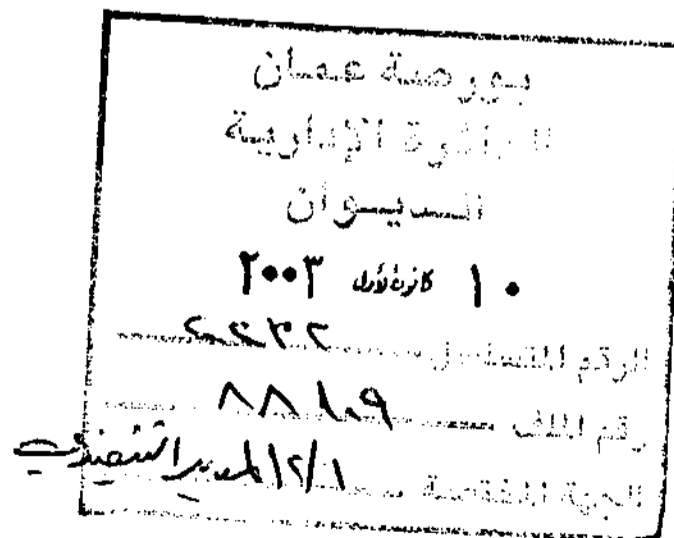 بورصة عمان
الدائرة الإدارية
الديوان
١٠ كانون الأول ٢٠٠٣
الرقم المتسلسل
رقم الملف ٨٨١٠٩
الجهة المختصة ١/١٢ المدير التنفيذي